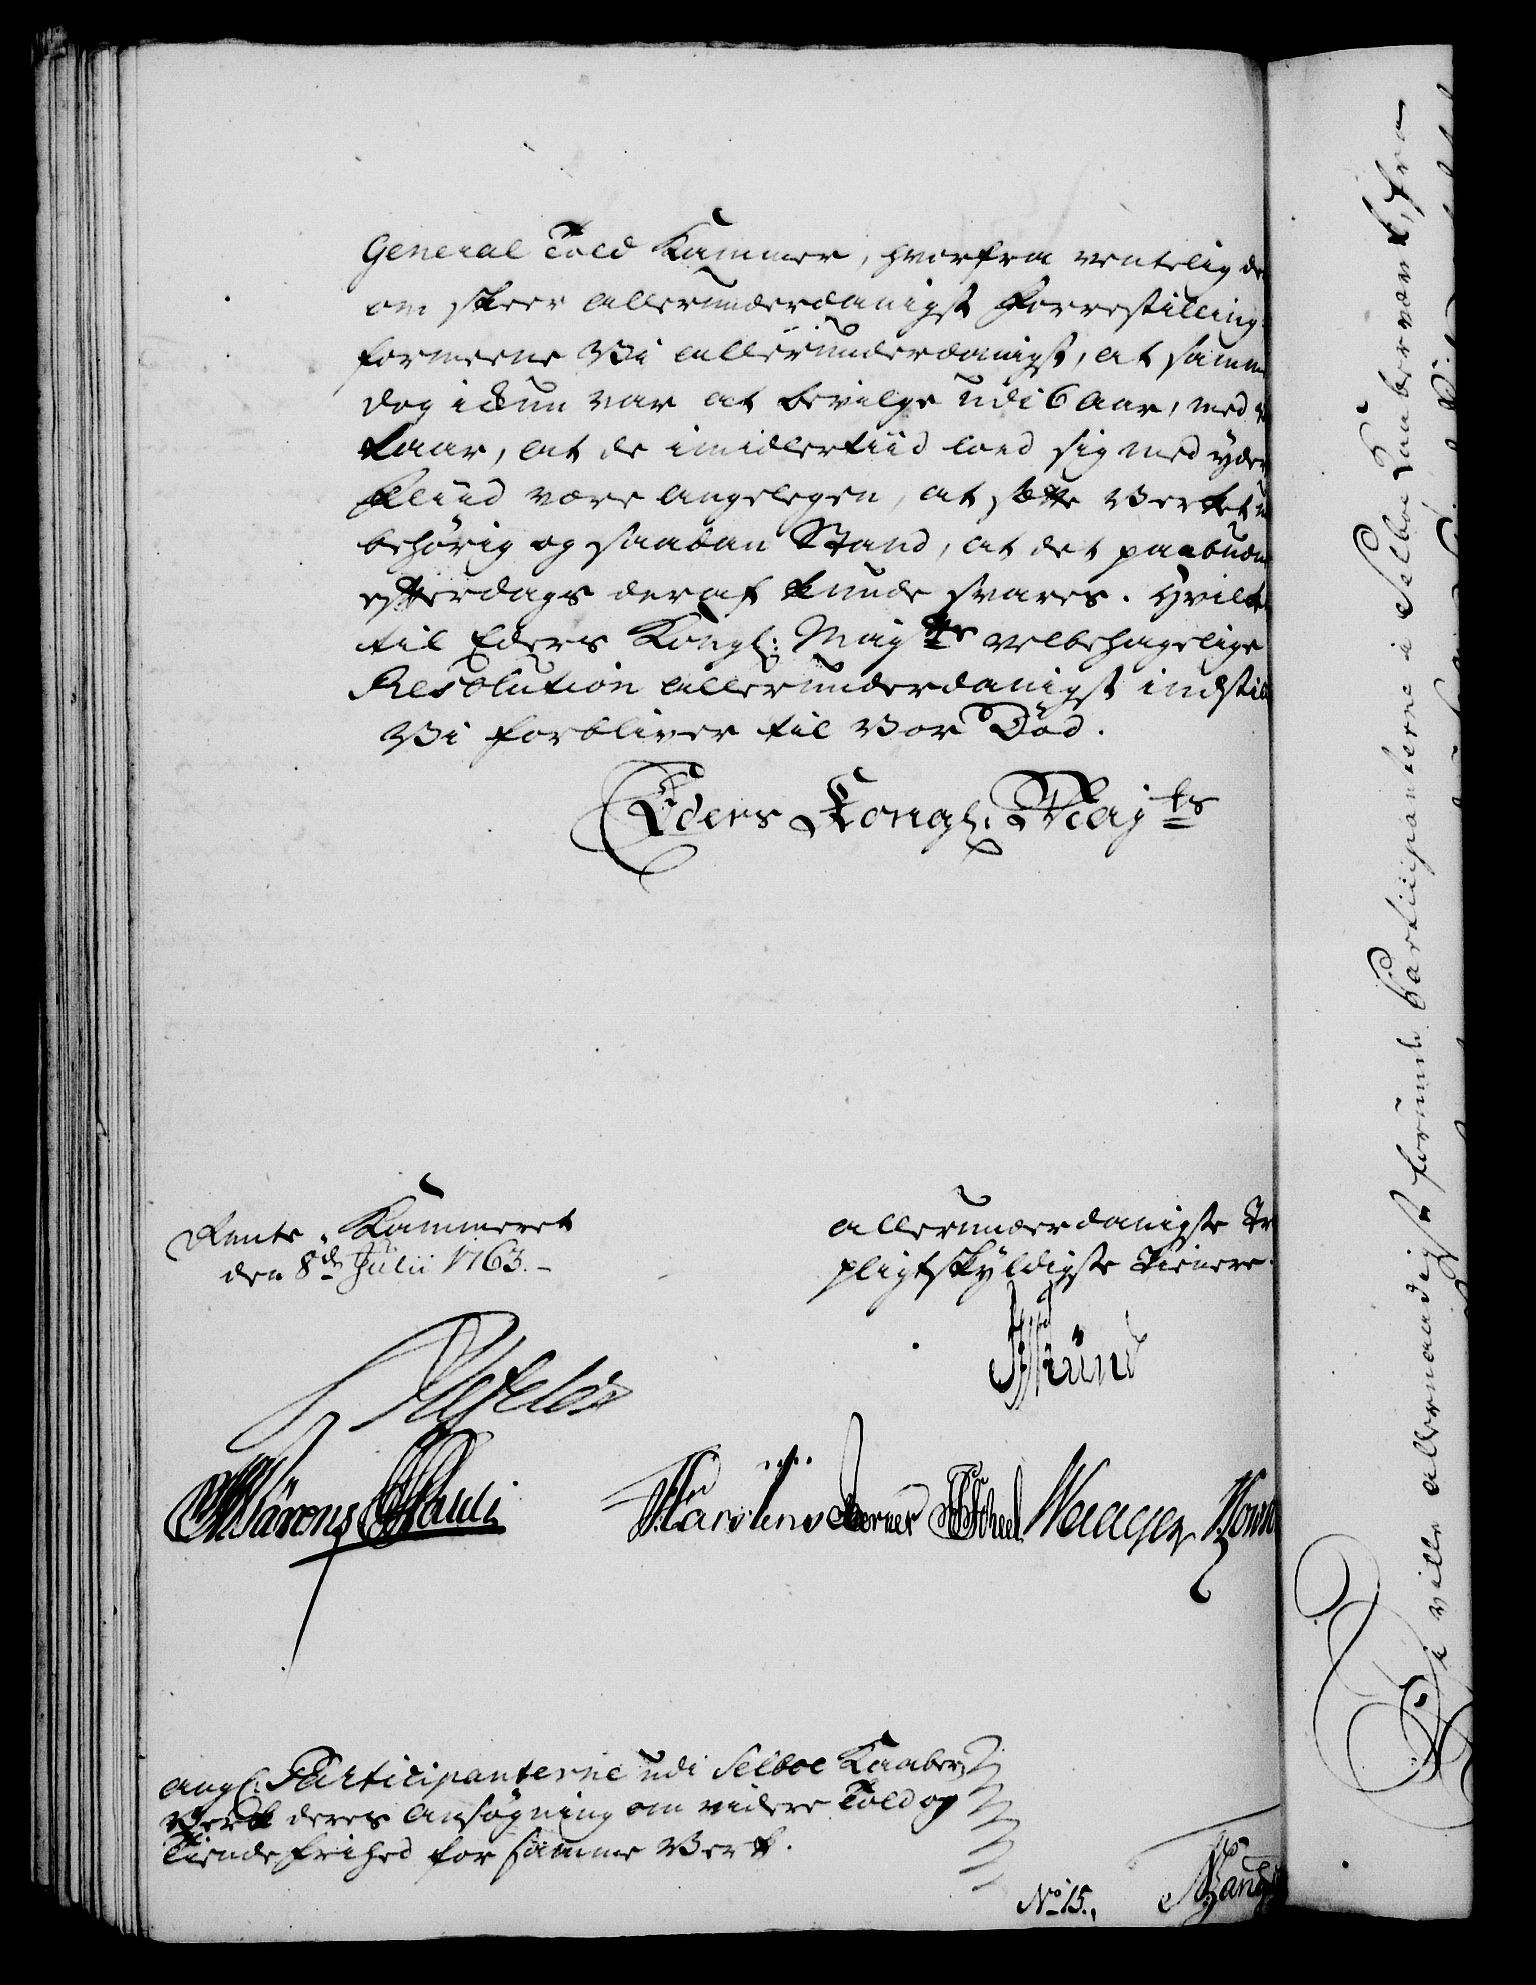 General Told Kammer, hvorfra ventelig de
om skeer allerunderdanigst Forrestilling
formeene Vi allerunderdanigst, at samm
dog ickun var at bevilge udi 6 Aar, med
kaar, at de imidlertiid lod sig med yder
Fliid være angelegen, at sætte Verket
behörig og saadan Stand, at det paabudne
efterdags deraf kunde svares. Hvilk
til Eders Kongl: Mayts velbehagelige
Resolution allerunderdanigst indstil
Vi forbliver til Vor Död.
Eders Kongl. Mayts
Rente-Kammeret
den 8de Julii 1763.
allerunderdanigste Tr
pligtskyldigste Tienere
Pauli
Karstens Berner Scheel Waager
angl. Participanterne udi Selboe Kaaber
Verk deres Ansögning om videre Told og
Tiende friehed for samme Verk.
No 15.
Vi ville allernaadigst forunde Participanterne i Selboe Kaaberværk, fra